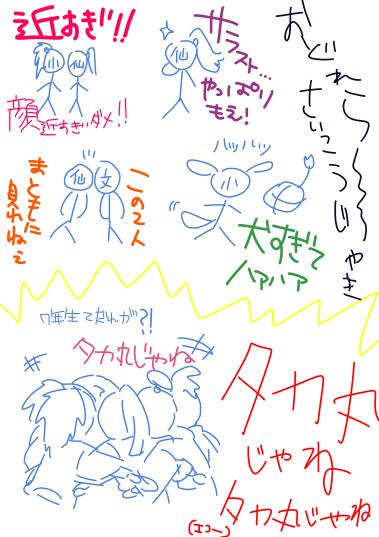 近すぎ!!
小
仙
顔近すぎダメ!!
サラスト…
やっぱり
もえ!
仙
おどれら〜〜
さいっこうじゃき
まともに
見れねぇ
仙
文
この2人
ハッハッ
小
犬すぎて
ハアハア
6年生てだれが?!
タカ丸じゃね
タカ丸
じゃね
タカ丸じゃね
(エコー)